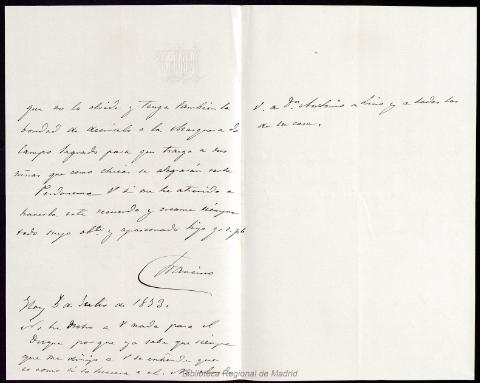 que no lo olvide y tenga tambien la
bondad de decirselo a la Marquesa de
Campo Sagrado para que traiga a sus
niñas que como chicas se alegrarán verlo
Perdoneme V si me he atrevido a
hacerle este recuerdo y creame siempre
todo suyo
y apasionado hijo q. s. p. b.
Francisco
Hoy 8 de Julio de 1853.
No he dicho a V nada para el
Duque porque ya sabe que siempre
que me dirijo a V se entiende que
es como si lo hiciera a el.
V. a Dn. Antonio a Luis y a todos los
de su casa.
Biblioteca Regional de Madrid